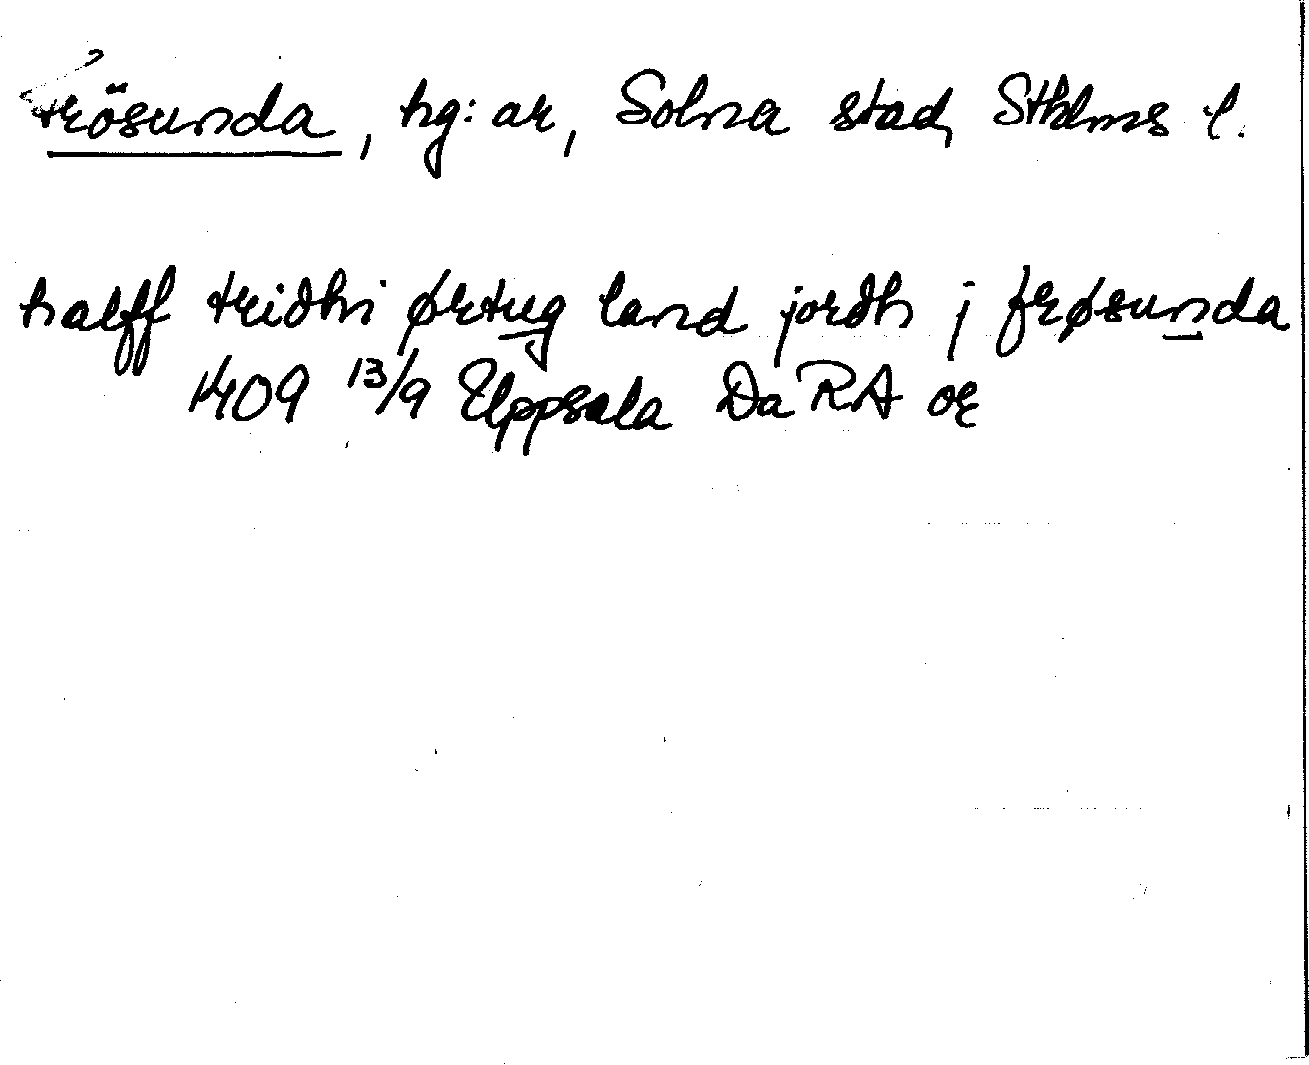 Frösunda, hg:ar, Solna stad, Sthlms l.
halff tridhi ørtug land jordh j frøsunda
1409 13/9 Uppsala Da RA or